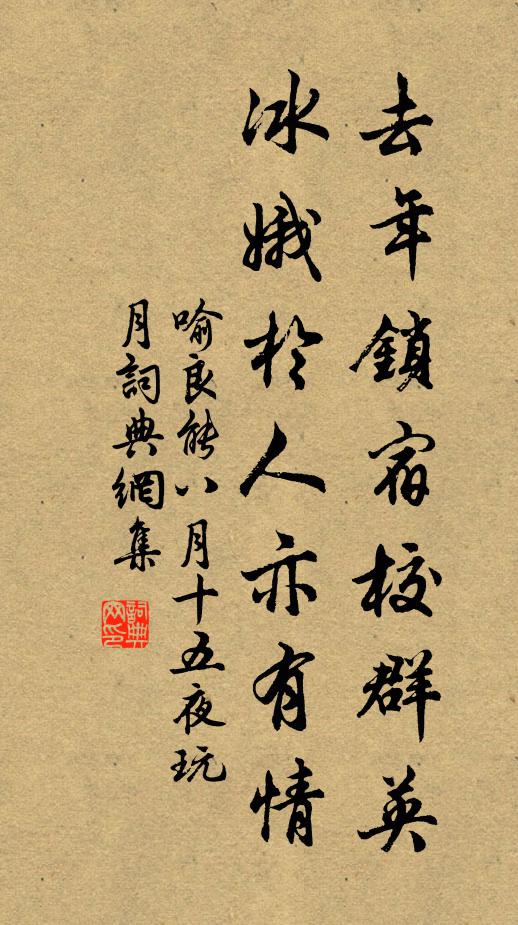 去年鎖宿校群英
冰娥於人亦有情
喻良能八月十五夜玩
月詞典網集
詞典
网印